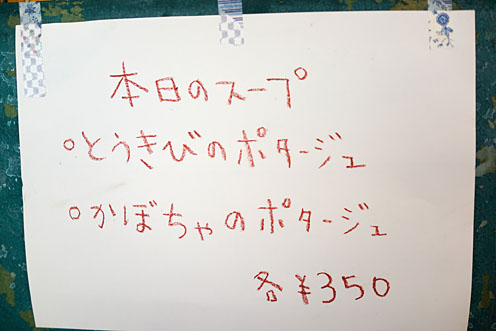 本日のスープ
○とうきびのポタージュ
○かぼちゃのポタージュ
各¥350